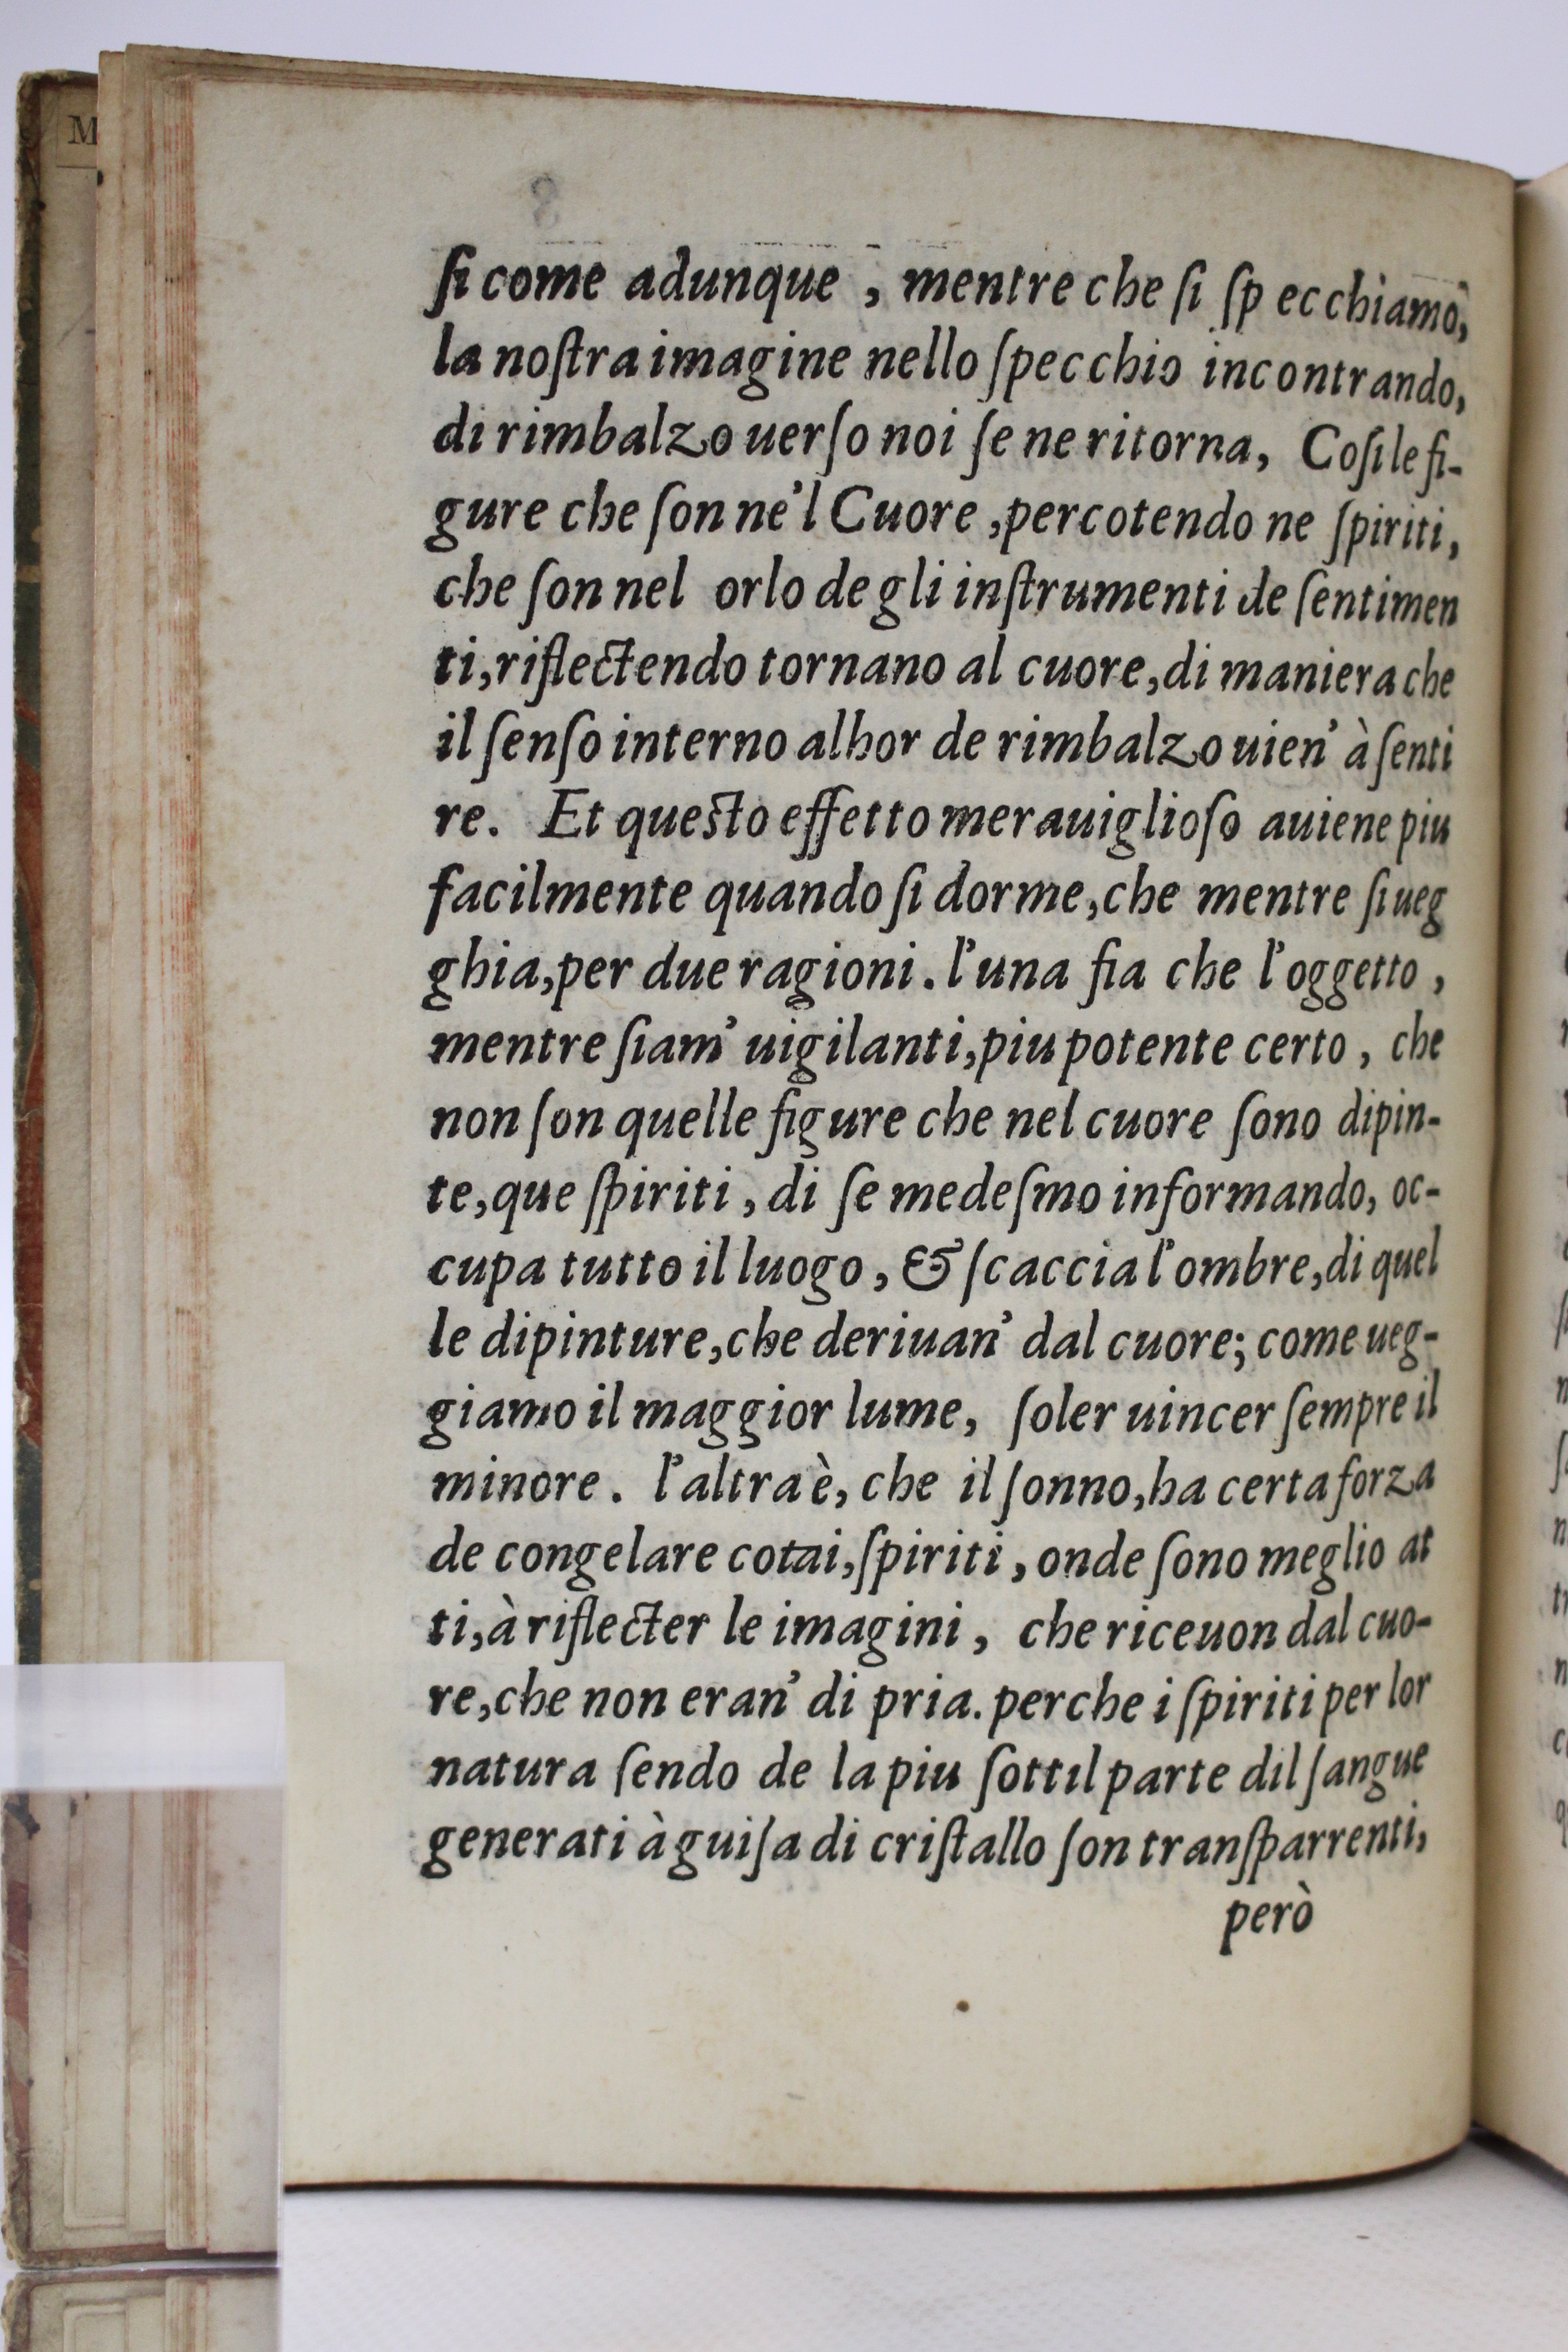 M
ſi come adunque , mentre che ſi ſp ecchiamo,
la noſtra imagine nello ſpecchio incontrando,
di rimbalzo uerſo noi ſe ne ritorna, Coſi le fi-
gure che ſon ne'l Cuore ,percotendo ne ſpiriti,
che ſon nel orlo de gli inſtrumenti de ſentimen
ti,riflectendo tornano al cuore,di maniera che
il ſenſo interno alhor de rimbalzo uien' à ſenti
re. Et queſto effetto merauiglioſo auiene piu
facilmente quando ſi dorme,che mentre ſi ueg
ghia,per due ragioni. l'una fia che l'oggetto ,
mentre ſiam' uigilanti,piu potente certo , che
non ſon quelle figure che nel cuore ſono dipin-
te,que ſpiriti , di ſe medeſmo informando, oc-
cupa tutto il luogo , & ſcaccia l'ombre,di quel
le dipinture,che deriuan' dal cuore; come ueg-
giamo il maggior lume, ſoler uincer ſempre il
minore. l'altra è, che il ſonno,ha certa forza
de congelare cotai,ſpiriti , onde ſono meglio at
ti,à riflecter le imagini , che riceuon dal cuo-
re,che non eran' di pria. perche i ſpiriti per lor
natura ſendo de la piu ſottil parte dil ſangue
generati à guiſa di criſtallo ſon tranſparrenti,
però